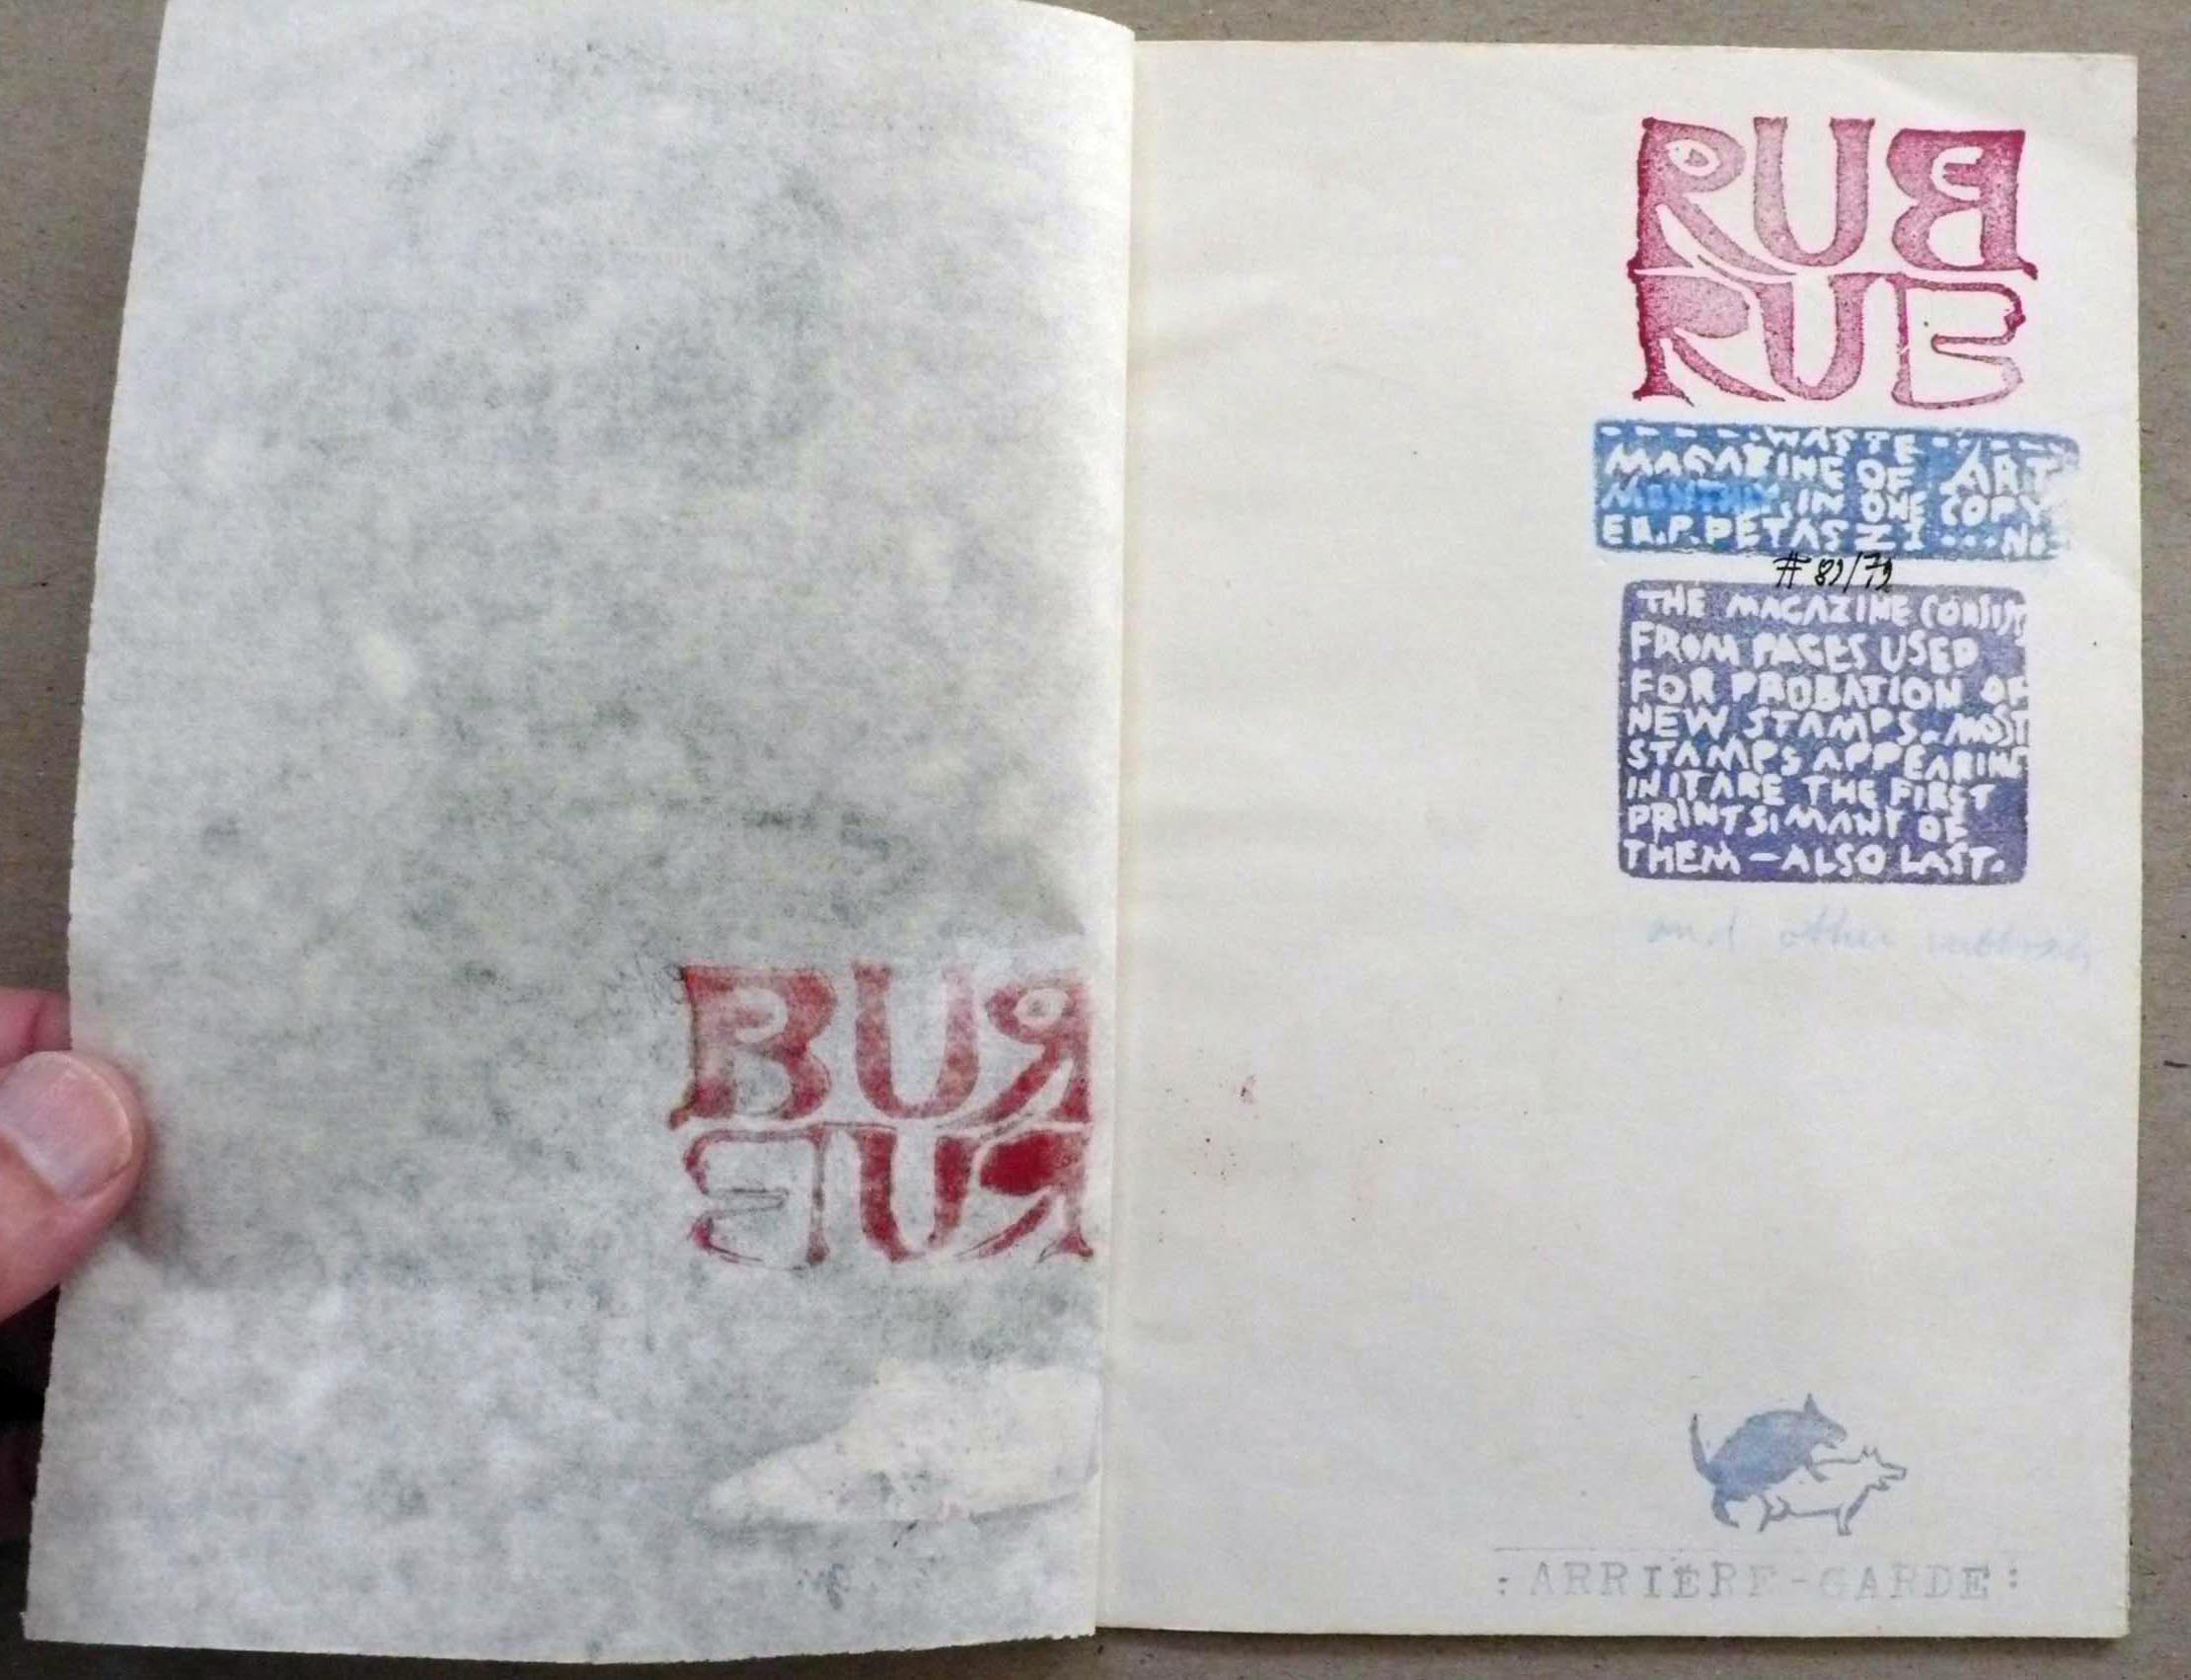 RUB
RUB
RUB
RUB
- - - - - WASTE - - - - -
MAGAZINE OF ART
MONTHLY. IN ONE COPY
ED. P. PETASZ I ... No:
# 82/79
THE MAGAZINE CONSIST
FROM PAGES USED
FOR PROBATION OF
NEW STAMPS. MOST
STAMPS APPEARING
IN IT ARE THE FIRST
PRINTS; MANY OF
THEM — ALSO LAST.
and other
: ARRIÈRE-GARDE :